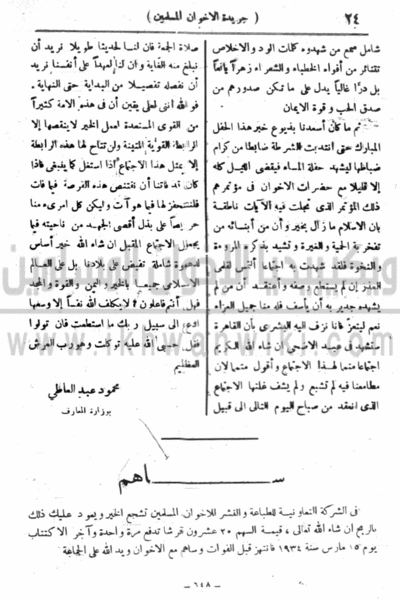 ٢٤
( جريدة الاخوان المسلمين )
شامل سمع من شهدوه كلمات الود والاخلاص
تتناثر من أفواه الخطباء والشعراء زهراً يانعاً
بل دراً غالياً يدل على ما تكن صدورهم من
صدق الحب وقوة الايمان
ثم ما كان أسعدنا بذيوع خبر هذا الحفل
المبارك حتى انتدبت الشرطة ضابطاً من كرام
ضباطها ليشهد حفلة المساء فيقضى الليل كله
إلا قليلا مع حضرات الاخوان فى مؤتمرهم
ذلك المؤتمر الذى تجلت فيه الآيات ناطقة
بان الاسلام ما زال بخير وأن من أبنائه من
تفخر به الحمية والغيرة وتشيد بذكره المروءة
والنخوة فلقد شهدت به اجتماعا ألتمس لقلمى
العذر إن لم يستطع وصفه وأعتقد أن من لم
يشهده جدير به أن يأسف فله منا جميل العزاء
نعم ليتعز فانا نزف اليه البشرى بأن القاهرة
ستشهد فى عيد الاضحى إن شاء الله الكريم
اجتماعا متمما لهذا الاجتماع وأقول متمما لان
مطامعنا فيه لم تشبع ولم يشف غلتها الاجتماع
الذى انعقد من صباح اليوم التالى الى قبيل
صلاة الجمعة فان لنا لحديثا طويلا نريد أن
نبلغ منه الغاية وإن لنا لعهداً على أنفسنا نريد
أن نفصله تفصيلا من البداية حتى النهاية.
فوالله اننى لعلى يقين أن فى هذه الامة كثيراً
من القوى المستعدة لعمل الخير لا ينقصها إلا
الرابطة القوية المتينة ولن تتاح لها هذه الرابطة
إلا بمثل هذا الاجتماع اذا استغل كما ينبغى فاذا
كان قد فاتنا أن نغتنم هذه الفرصة فيما فات
فلنتحفز لها فيما هو آت وليكن كل امرىء منا
حريصاً على بذل أقصى الجهد من ناحيته فيما
يجعل الاجتماع المقبل ان شاء الله خير أساس
لنهضة شاملة تفيض على بلادنا بل على العالم
الاسلامى جميعا بالخير واليمن والقوة والمجد
فهل أنتم فاعلون؟ لا يكلف الله نفساً إلا وسعها
ادع الى سبيل ربك ما استطعت فان تولوا
فقل حسبى الله عليه توكلت وهو رب العرش
العظيم
محمود عبد العاطي
بوزارة المعارف
ساهم
فى الشركة التعاونية للطباعة والنشر للاخوان المسلمين تشجع الخير ويعود عليك ذلك
بالربح ان شاء الله تعالى ، قيمة السهم ٢٠ عشرون قرشا تدفع مرة واحدة وآخر الاكتتاب
يوم ١٥ مارس سنة ١٩٣٤ فانتهز قبل الفوات وساهم مع الاخوان ويد الله على الجماعة
— ٦٤٨ —